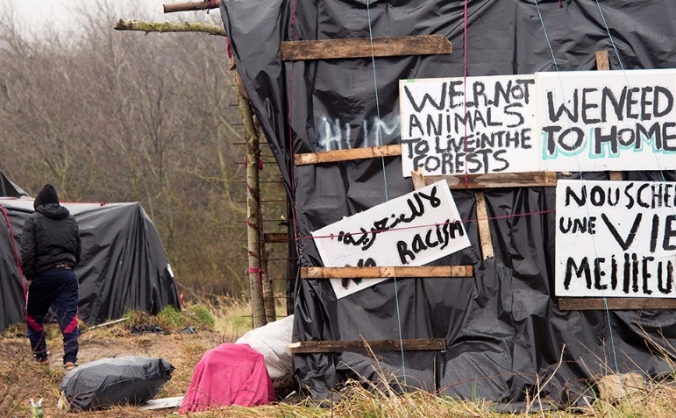 WER NOT
ANIMALS
TO LIVE IN THE
FORESTS
WE NEED
TO HOME
لا للعنصرية
NO RACISM
NOU SCHER
UNE VIE
MEILLEU